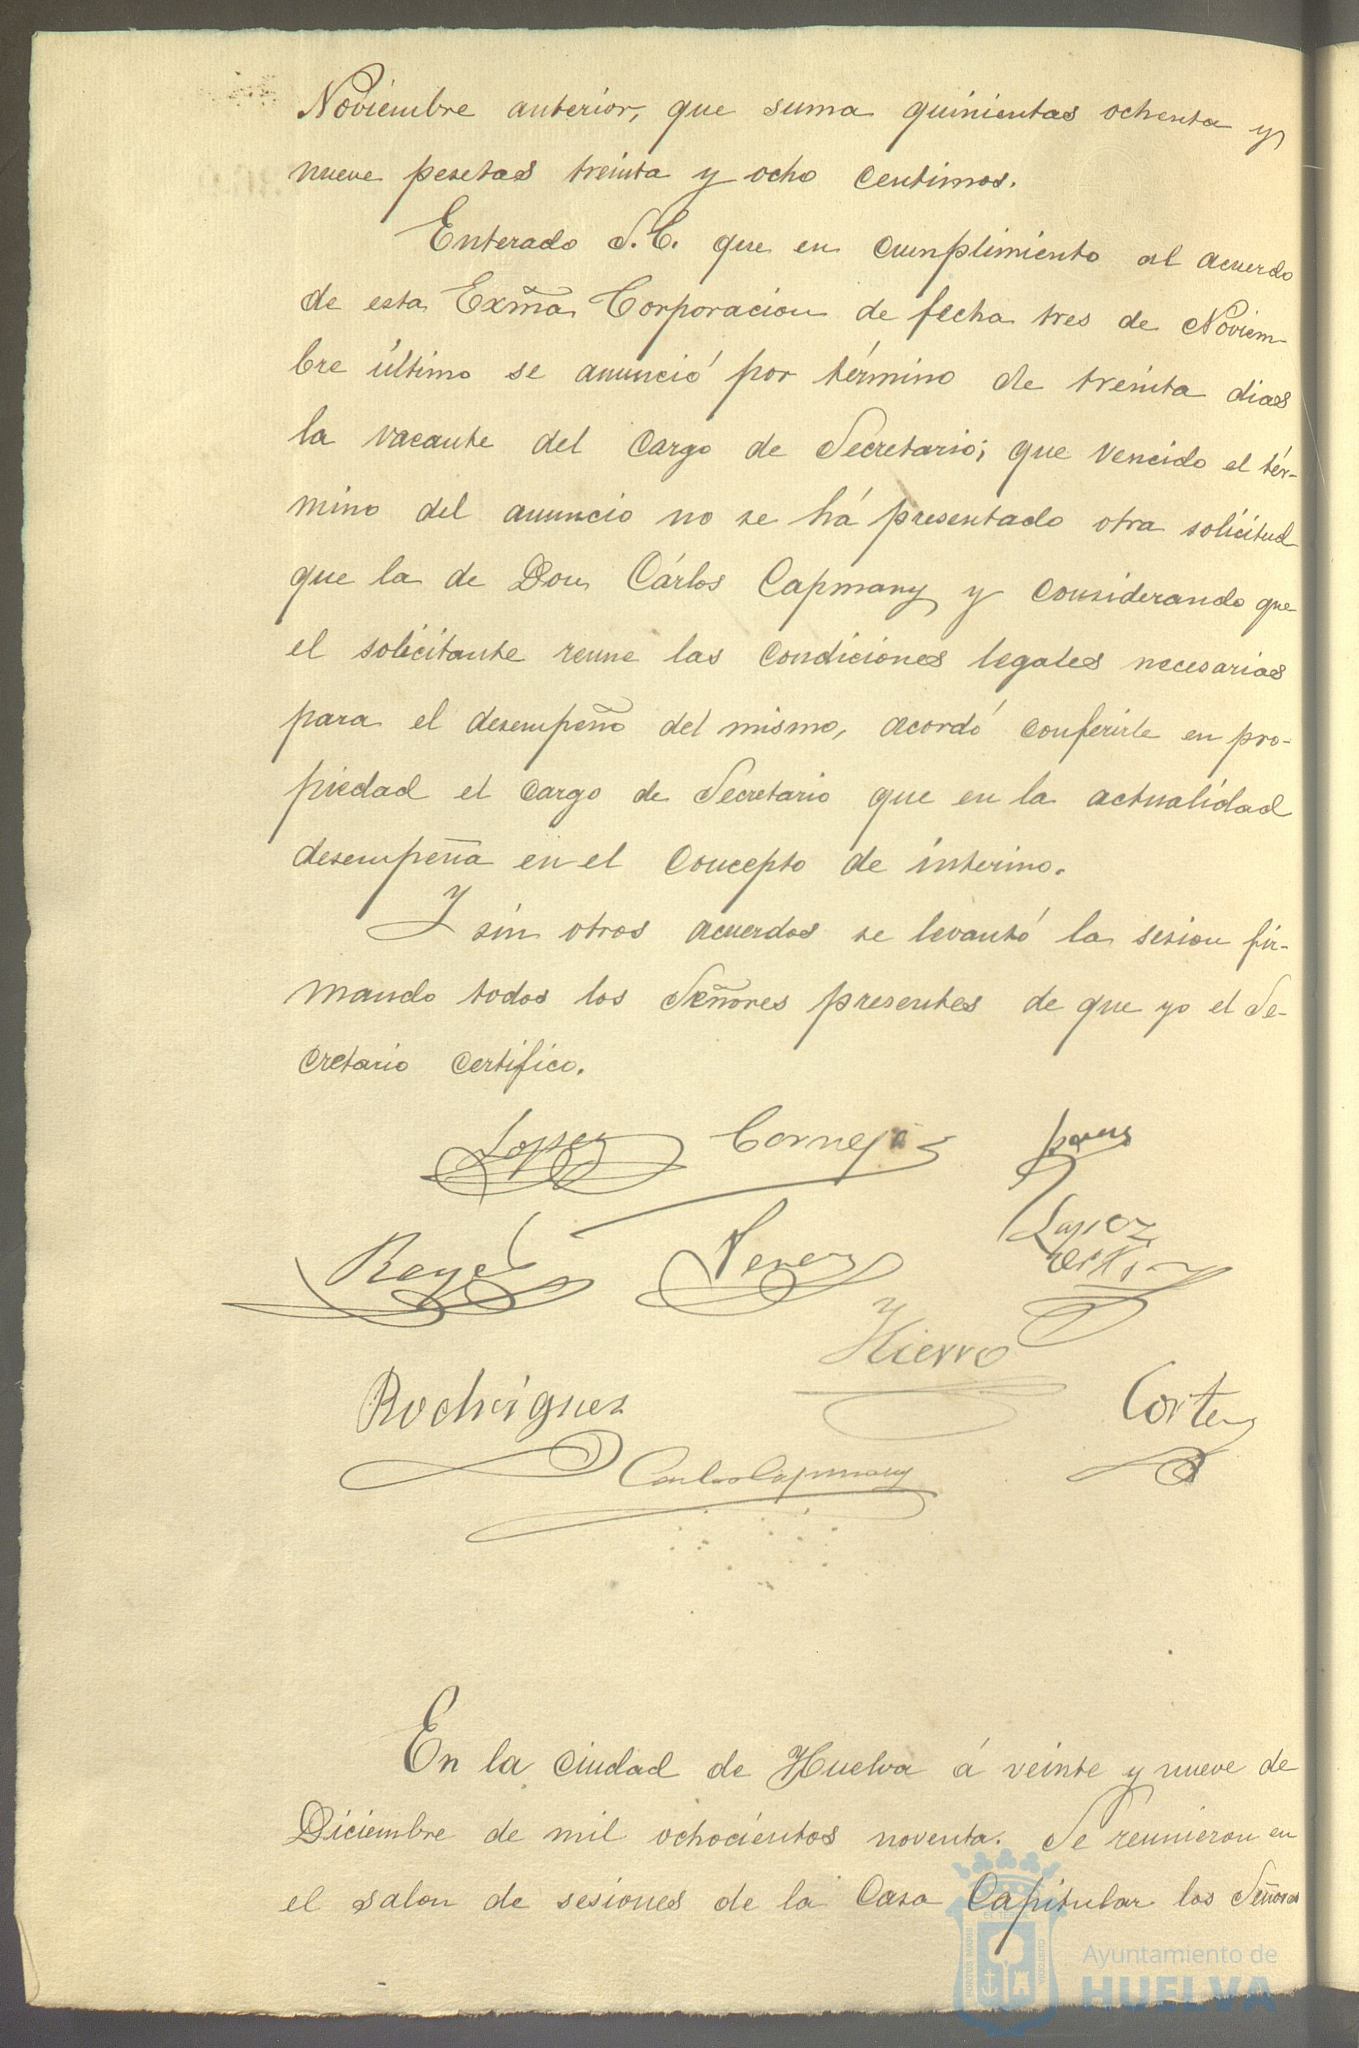 Noviembre anterior, que suma quinientas ochenta y
nueve pesetas treinta y ocho centimos.
Enterado S.E. que en cumplimiento al acuerdo
de esta Exm̃a Corporacion de fecha tres de Noviem-
bre último se anunció por término de treinta dias
la vacante del cargo de Secretario; que vencido el tér-
mino del anuncio no se há presentado otra solicitud
que la de Don Cárlos Capmany y considerando que
el solicitante reune las condiciones legales necesarias
para el desempeño del mismo, acordó conferirle en pro-
piedad el cargo de Secretario que en la actualidad
desempeña en el concepto de interino.
Y sin otros acuerdos se levantó la sesion fir-
mando todos los Señores presentes de que yo el Se-
cretario certifico.
Lopez Cornejo
Reyes Perez Lopez
Hierro
Rodriguez Cortes
Carlos Capmany
En la ciudad de Huelva á veinte y nueve de
Diciembre de mil ochocientos noventa. Se reunieron en
el salon de sesiones de la Casa Capitular los Señores
PORTUS MARIS ET TERRAE CUSTODIA
Ayuntamiento de
HUELVA